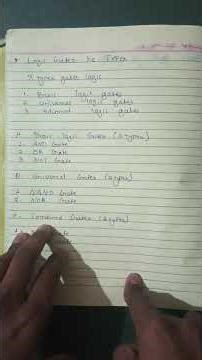 * Logic Gates Ke Types
7 Types gates logic
1. Basic logic gates
2. Universal logic gates
3. logic gates
A. Basic logic Gates (3 types)
1. AND Gate
2. OR Gate
3. NOT Gate
B. Universal Gates (2 types)
1. NAND Gate
2. NOR Gate
Gates (2 types)